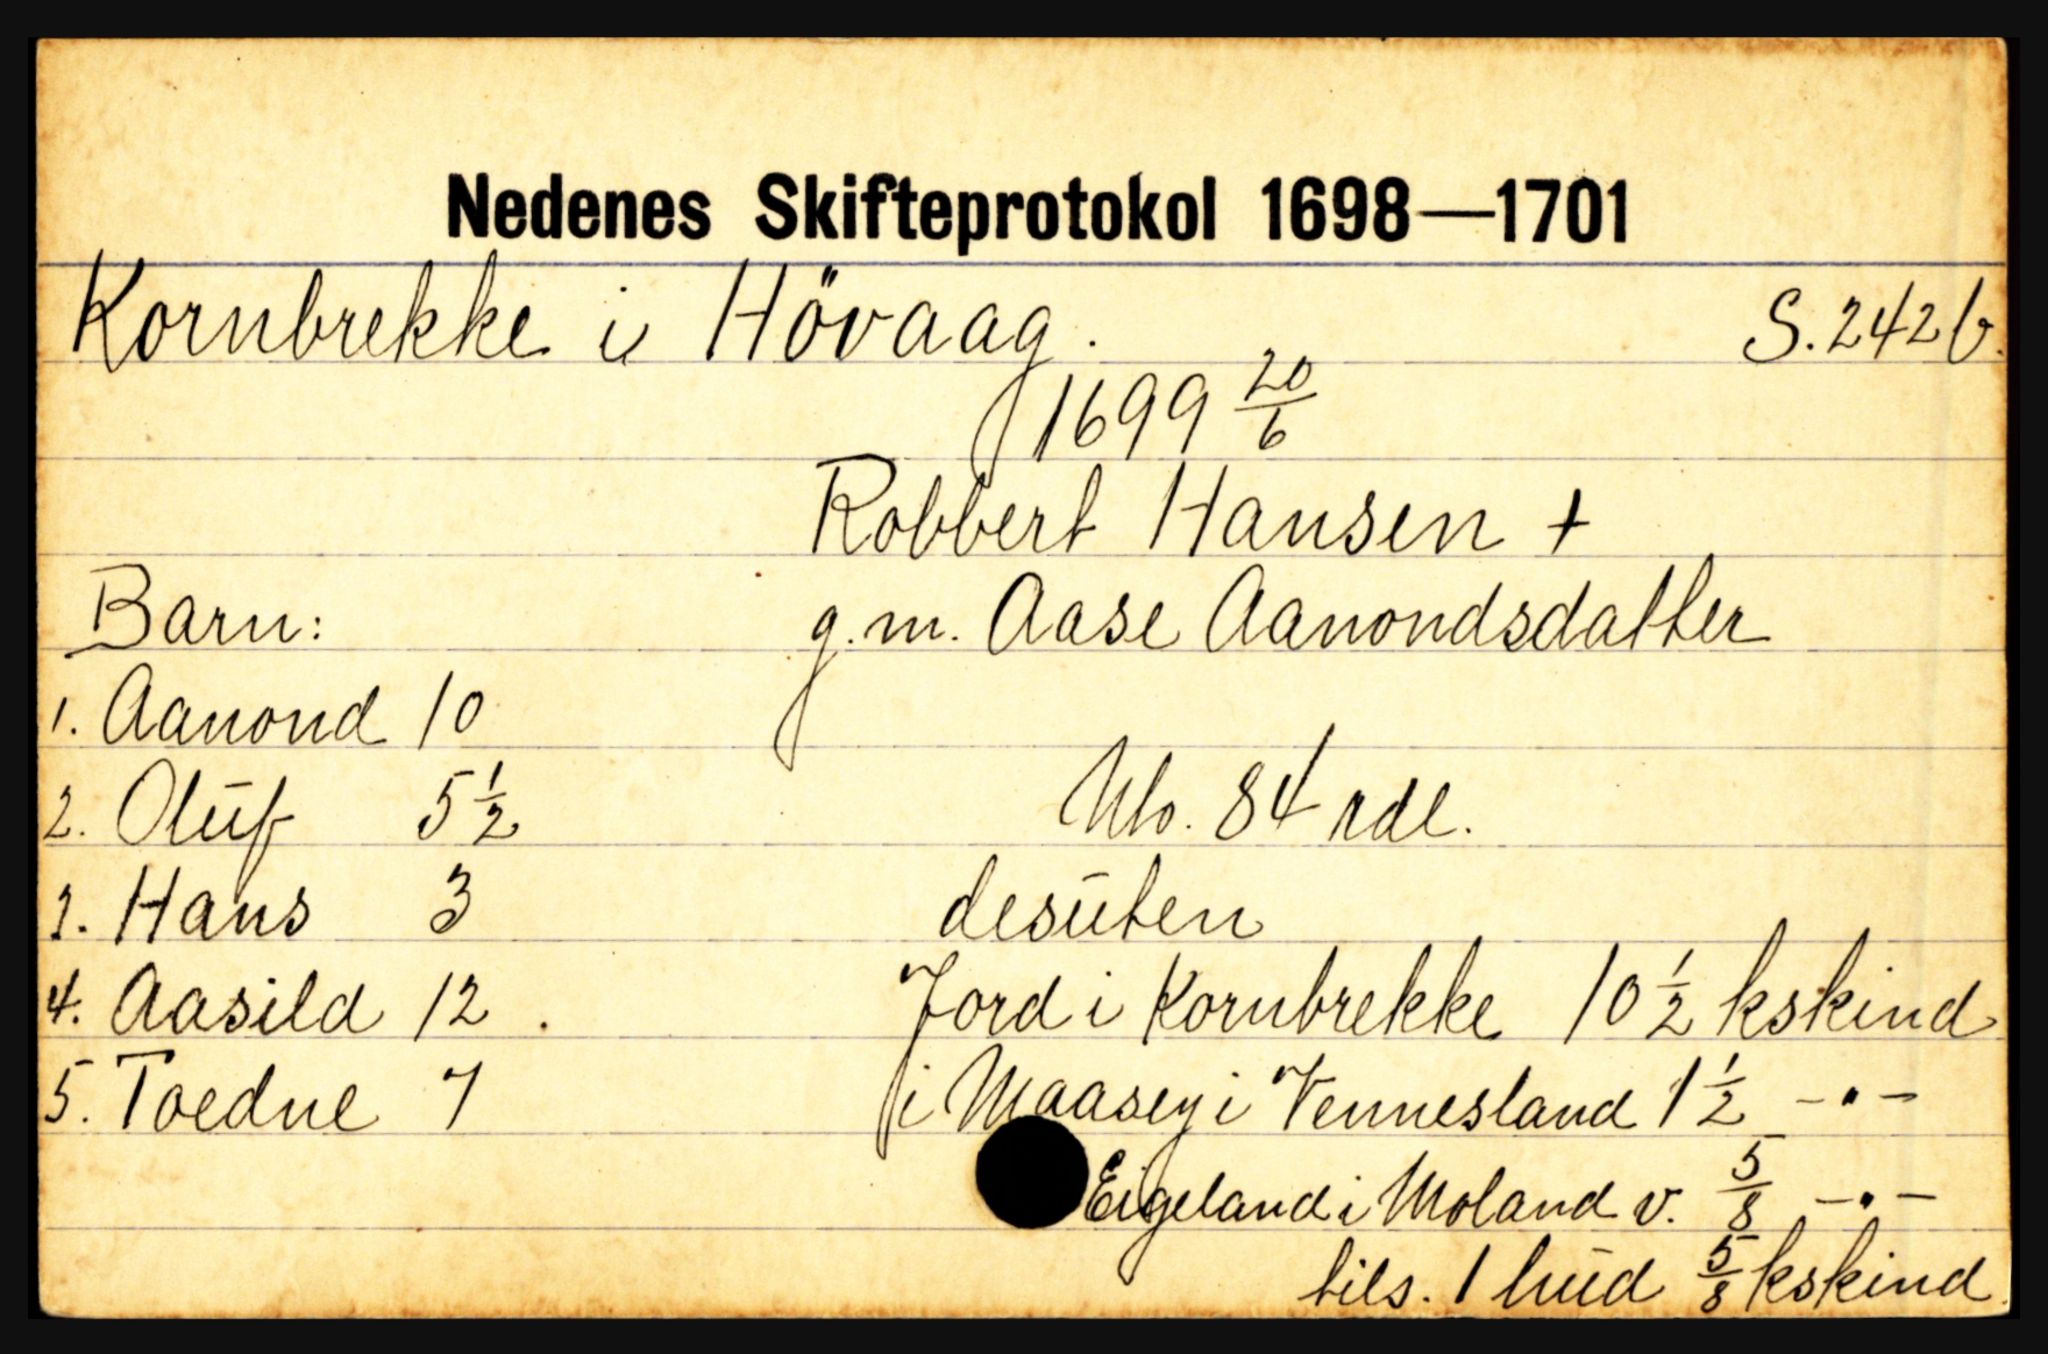 Nedenes Skifteprotokol 1698—1701
Kornbrekke i Hövaag. S. 242b.
1699 20/6
Robbert Hansen +
Barn: g.m. Aase Aanondsdatter
1. Aanond 10
2. Oluf 5 1/2 Hlo. 84 rdl.
3. Hans 3 desuten
4. Aasild 12. Jord i Kornbrekke 10 1/2 kskind
5. Toedne 7 i Maasey i Vennesland 1 1/2 -"-
Eigeland i Moland v. 5/8 -"-
tils. 1 hud 5/8 kskind